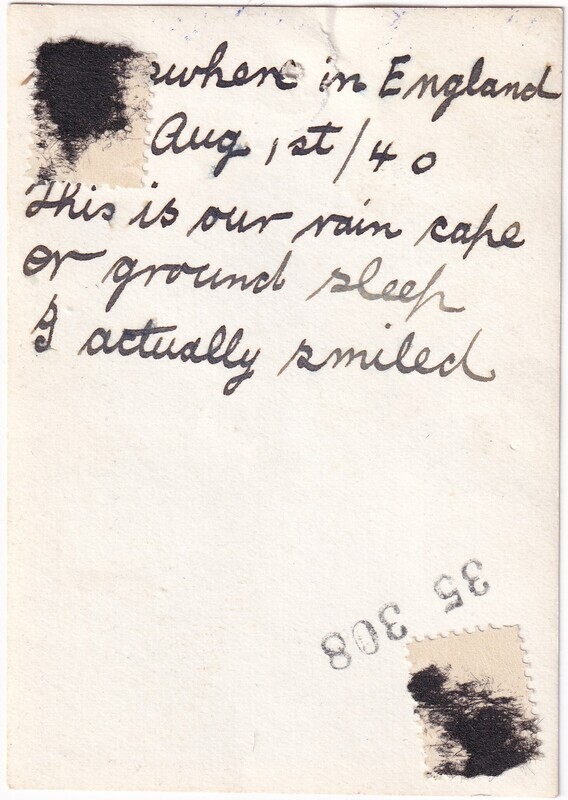 ewhere in England
Aug 1st/40
This is our rain cape
or ground sleep
I actually smiled
35 308